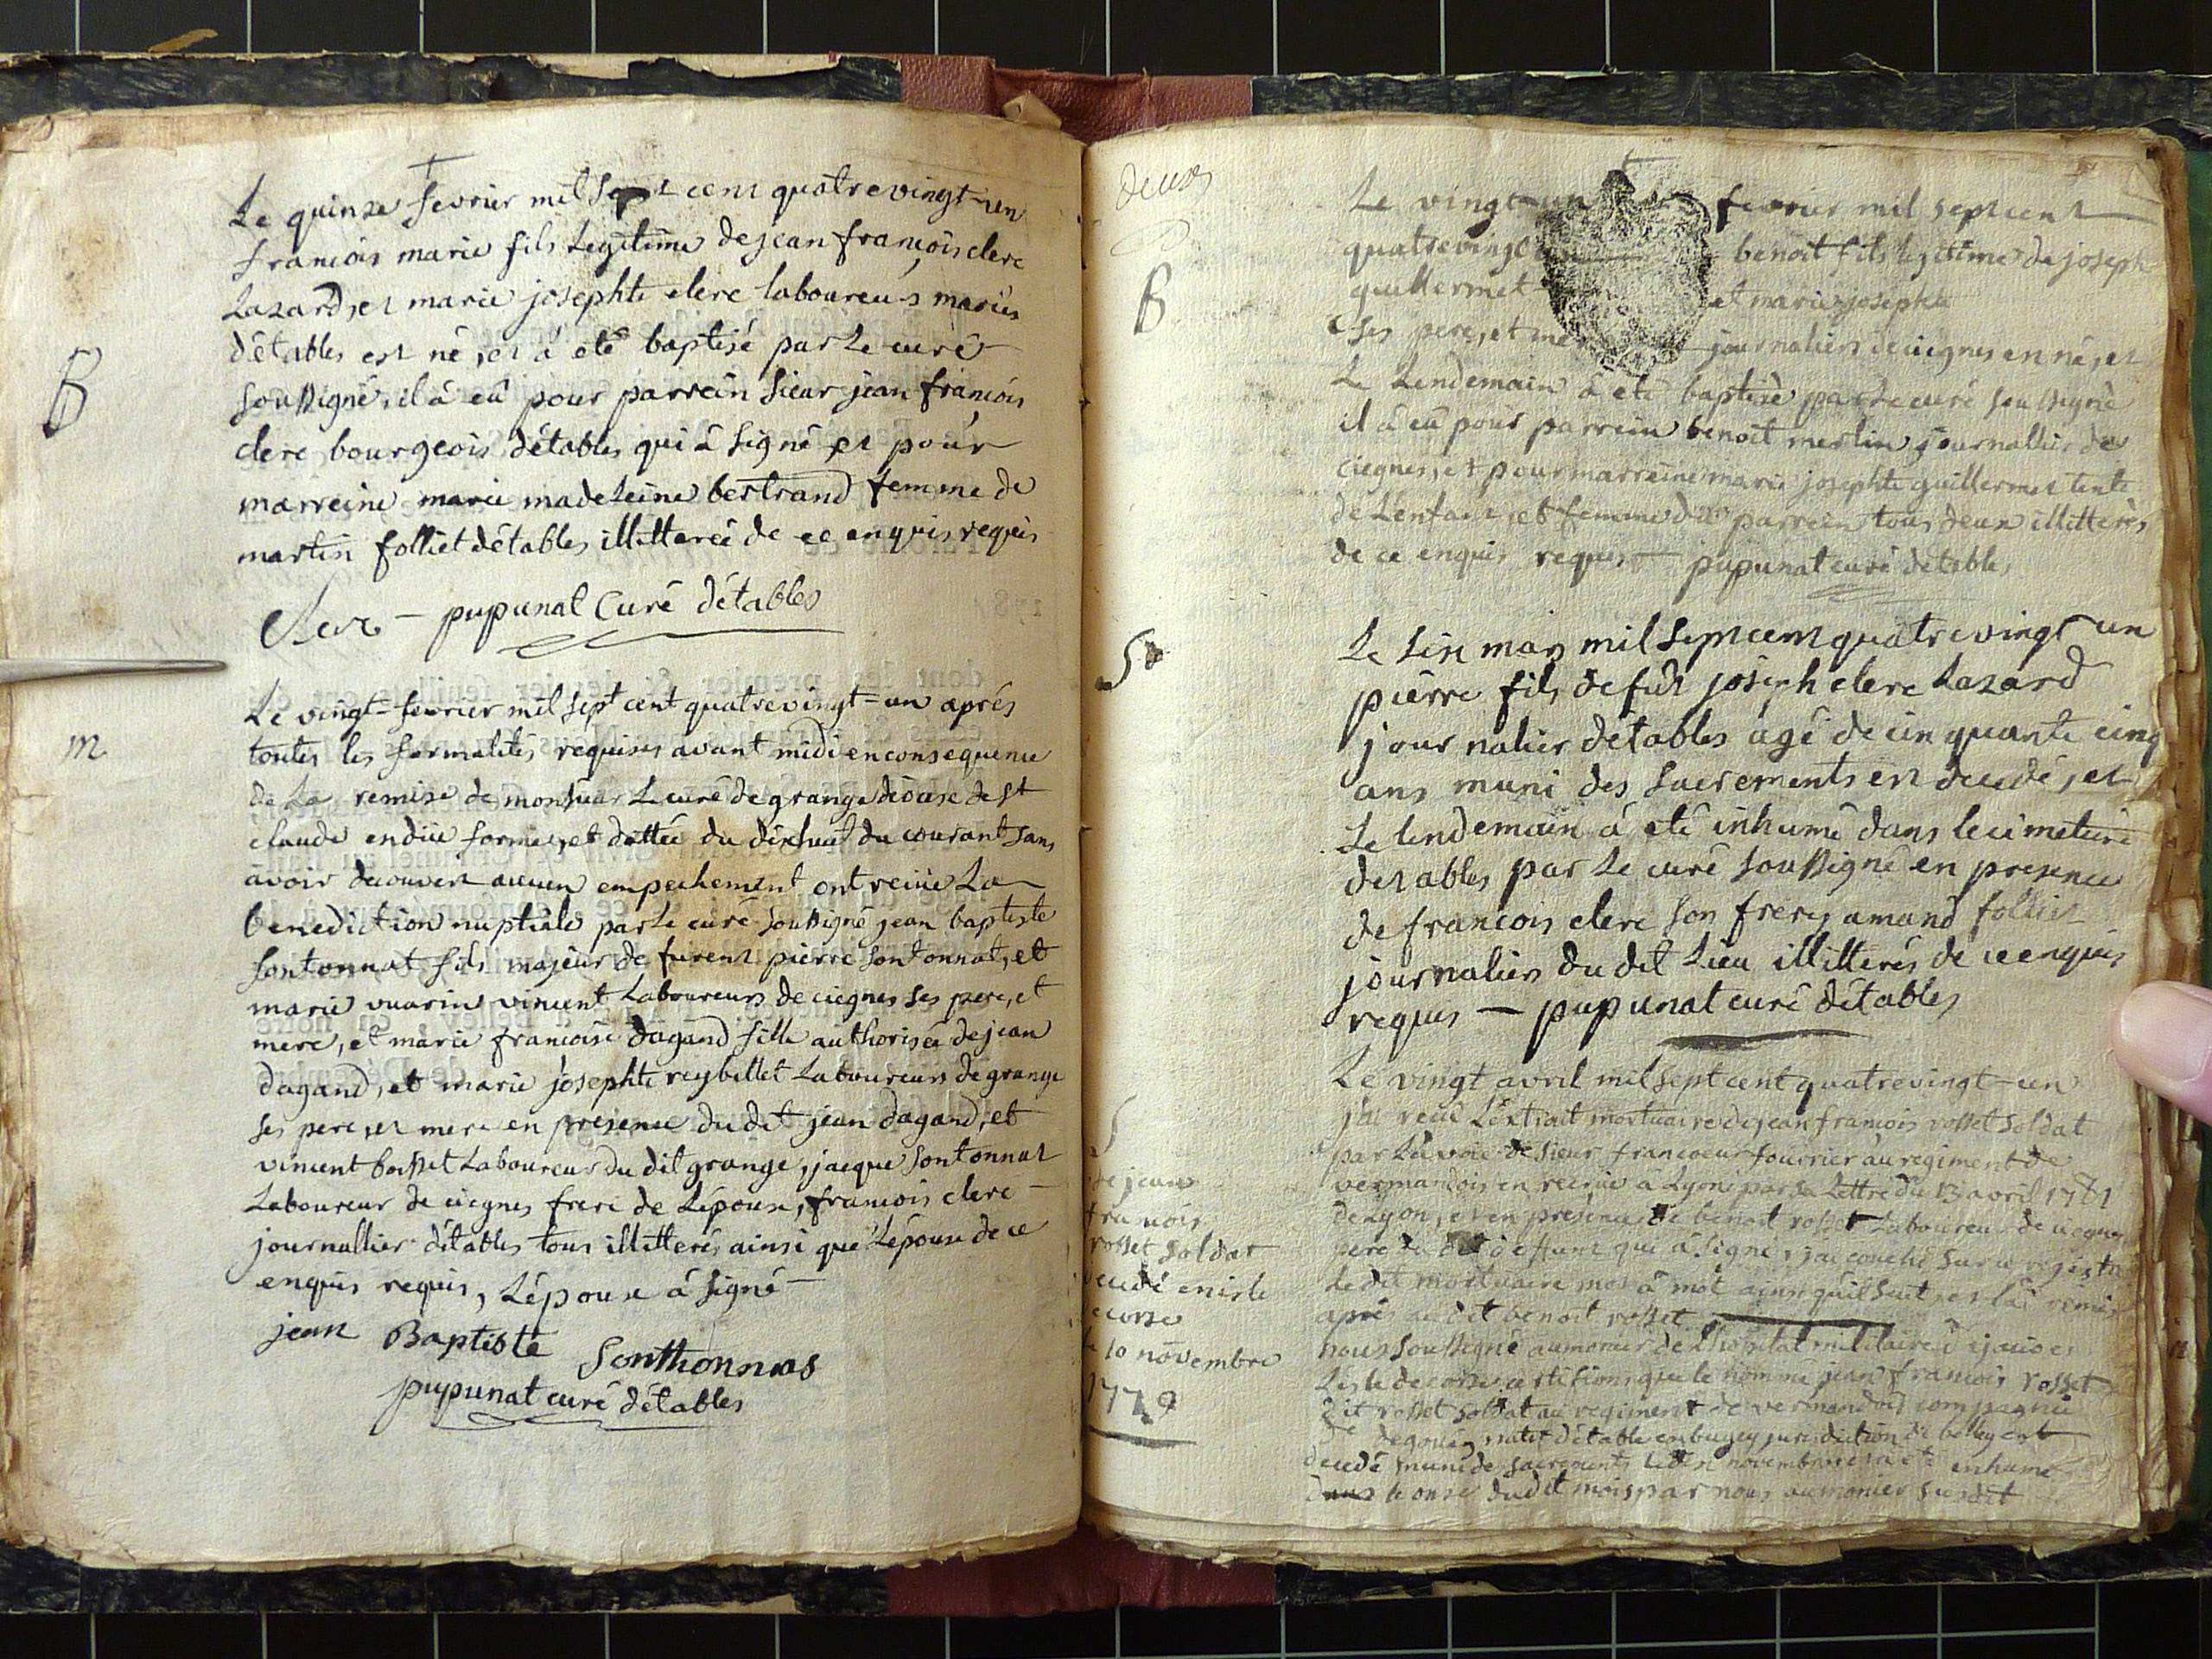 B
Le quinze fevrier mil sept cent quatre vingt-un
francois marie fils Legitime de jean francois clerc
Lazard, et marie josephte clerc laboureurs mariés
détables est né, et à eté baptisé par Le curé
soussigné, il à eû pour parrein sieur jean francois
clerc bourgeois détables qui à signé et pour
marreine marie madeleine bertrand femme de
martin folliet détables illitterée de ce enquis requis
Clerc – pupunat Curé détables
m
Le vingt-fevrier mil sept cent quatrevingt=un aprés
toutes les formalités requises avant midi en consequence
de La remise de monsieur Le curé de grange diocise de st
claude en dûe forme, et dattée du dixhuit du courant sans
avoir decouvert aucun empechement ont recûe La
benediction nuptiale par Le curé soussigné jean baptiste
sontonnat fils majeur de furent pierre sontonnat, et
marie vuarin vincent Laboureurs de ciegnes ses pere, et
mere, et marie francoise dagand fille authorisée de jean
dagand, et marie josephte reybillet Laboureurs de grange
ses pere, et mere en presence du dit jean dagand, et
vincent bosset Laboureurs du dit grange, jacque sontonnat
Laboureur de ciegnes frere de Lépoux, francois clerc
journallier détables tous illitterés ainsi que Lépouse de ce
enquis requis, Lépoux à signé
jean Baptiste Sonthonnas
pupunat curé détables
deux
B
Le vingt-un fevrier mil sept cent
quatrevingt benoit fils legitime de joseph
guillermet et marie josephte
ses pere, et mere journaliers de ciegnes est né, et
Le Lendemain à eté baptisé par Le curé soussigné
il à eû pour parrein benoit merlin journallier de
ciegnes, et pour marreine marie josephte guillermet tente
de Lenfant, et femme du parrein tous deux illitterés
de ce enquis requis – pupunat curé détables
S
Le six mars mil sept cent quatre vingt un
pierre fils de fut joseph clerc Lazard
journalier détables agé de cinquante cinq
ans muni des sacrements est decedé, et
Le lendemain à eté inhumé dans le cimetiere
detables par Le curé soussigné en presence
de francois clerc son frere, amand folliet
journaliers du dit Lieu illitterés de ce enquis
requis – pupunat curé détables
S
de jean
francois
rosset soldat
decedé en isle
de corse
le 10 novembre
1779
Le vingt avril mil sept cent quatrevingt-un
j'ai recû L'extrait mortuaire de jean francois rosset soldat
par La voie de sieur francoeur fourrier au regiment de
vermandois en recrüe à Lyon par sa Lettre du 13 avril 1781
de Lyon, et en presence de benoit rosset Laboureur de ciegnes
pere du dit deffunt qui à signé, j'ai couché sur ce registre
le dit mortuaire mot à mot ainsi quil suit, et l'ai remis
aprés au dit benoit rosset
nous soussigné aumonier de L'hopital militaire d'ajaccio en
L'isle de corse certifions que le nommé jean francois rosset
dit rosset soldat au regiment de vermandois compagnie
natif d'étable en bugey jurisdiction de belley est
decedé muni des sacrements le dix novembre et à eté enhumé
le onze dudit mois par nous aumonier susdit